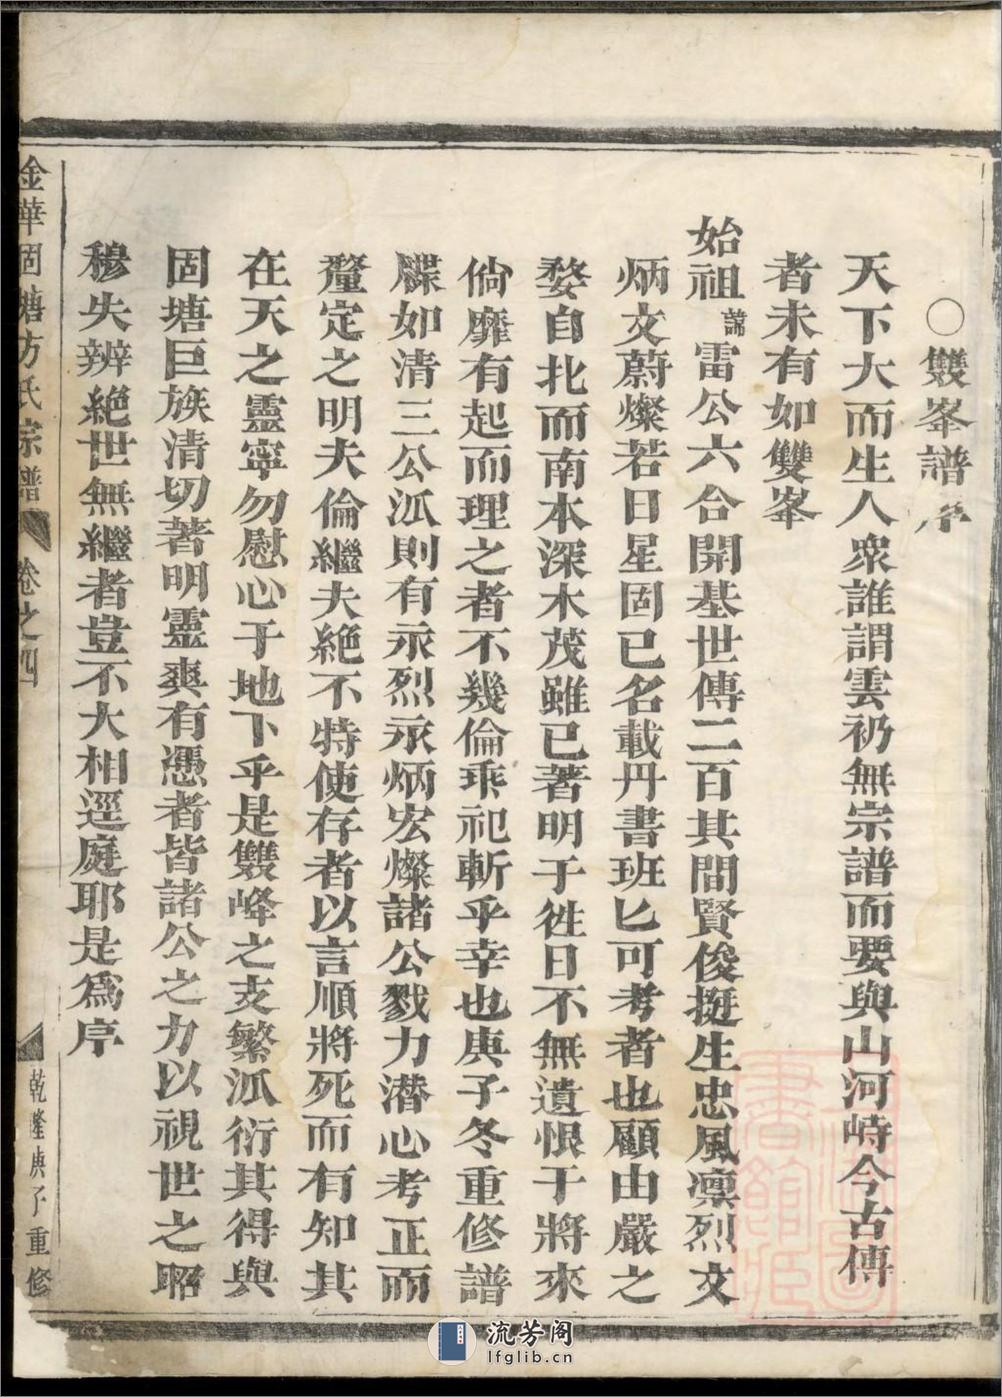 ○雙峯譜序
天下大而生人衆誰謂雲礽無宗譜而要與山河峙今古傳
者未有如雙峯
始祖諱雷公六合開基世傳二百其間賢俊挺生忠風凛烈文
炳文蔚燦若日星固已名載丹書班匕可考者也顧由嚴之
婺自北而南本深木茂雖已著明于徃日不無遺恨于將來
倘靡有起而理之者不幾倫乖祀斬乎幸也庚子冬重修譜
牒如清三公派則有永烈永炳宏燦諸公戮力潜心考正而
釐定之明夫倫繼夫絶不特使存者以言順將死而有知其
在天之靈寧勿慰心于地下乎是雙峰之支繁派衍其得與
固塘巨族清切著明靈爽有憑者皆諸公之力以視世之昭
穆失辨絶世無繼者豈不大相逕庭耶是爲序
金華固塘方氏宗譜 卷之四 乾隆庚子重修
流芳阁
lfglib.cn